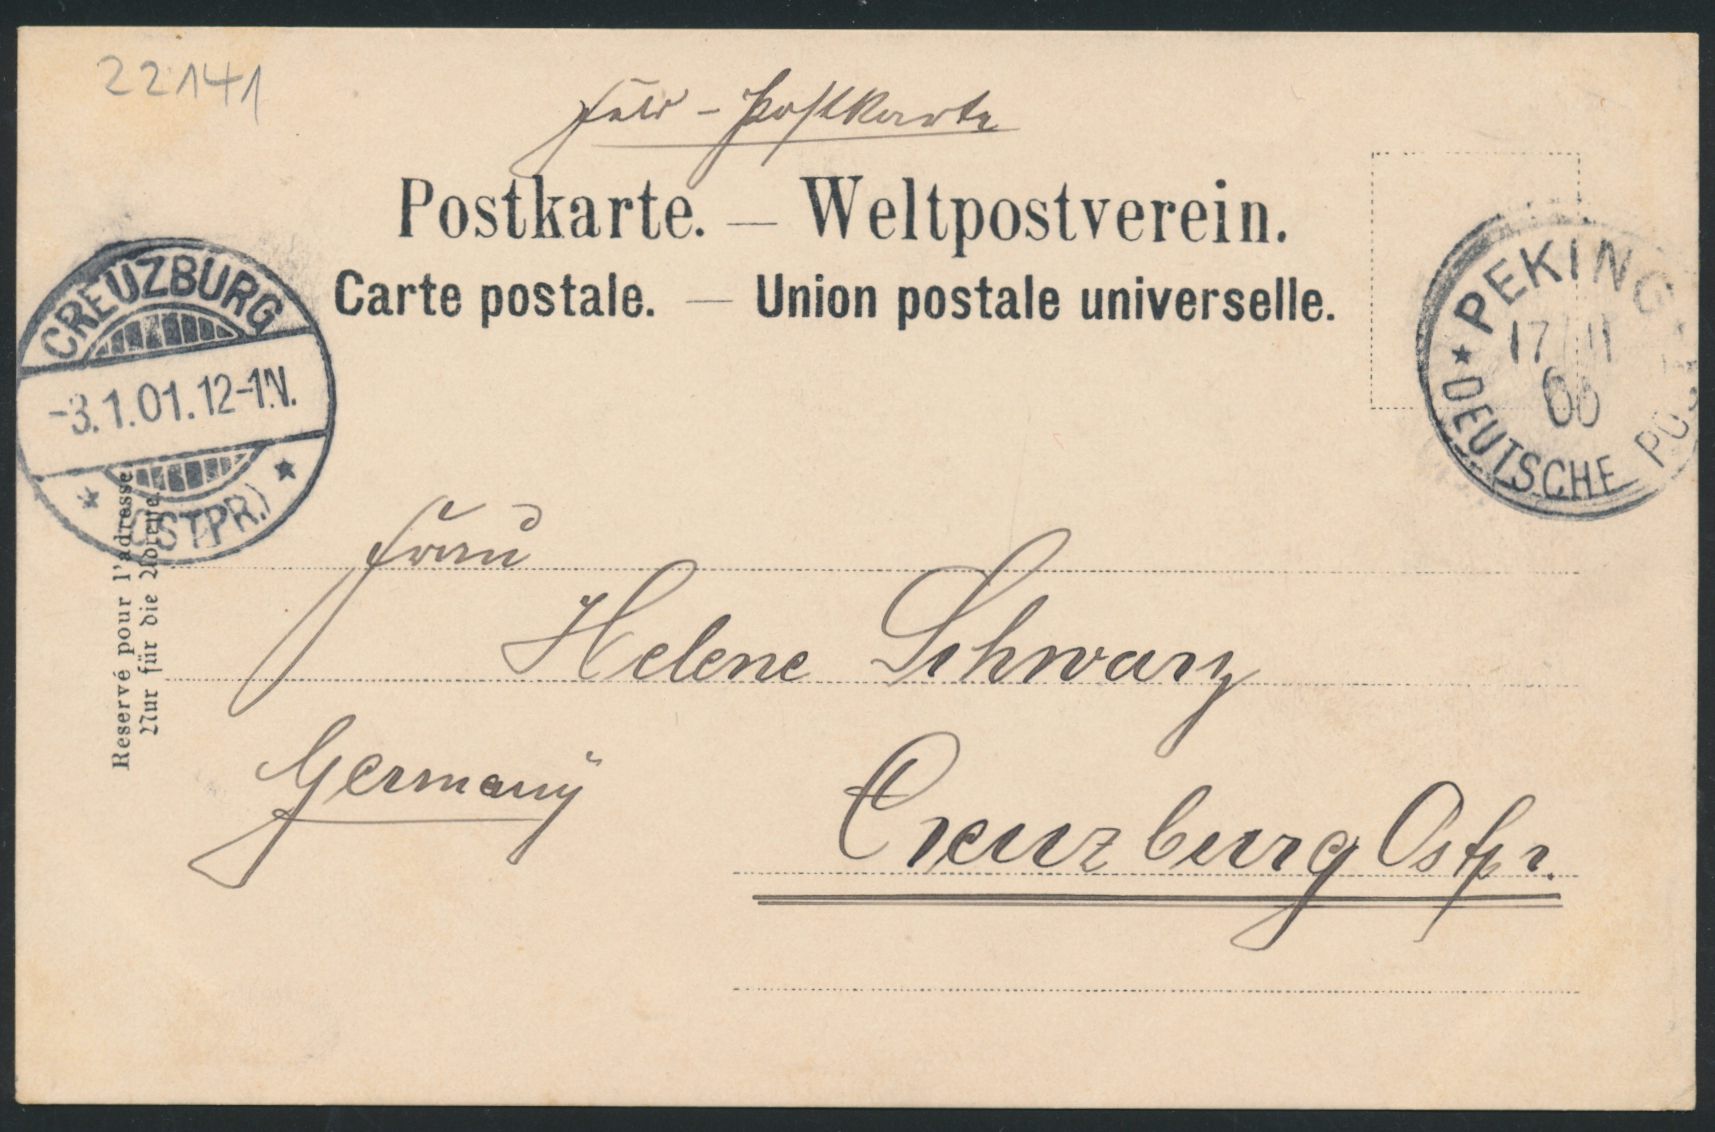 22141
Feld-Postkarte
Postkarte. — Weltpostverein.
Carte postale. — Union postale universelle.
CREUZBURG
-3.1.01.12-1N.
(OSTPR.)
PEKING
17/11
00
DEUTSCHE POST
Reservé pour l'adresse
Nur für die Adresse
Frau
Helene Schwarz
Germany
Creuzburg Ostpr.